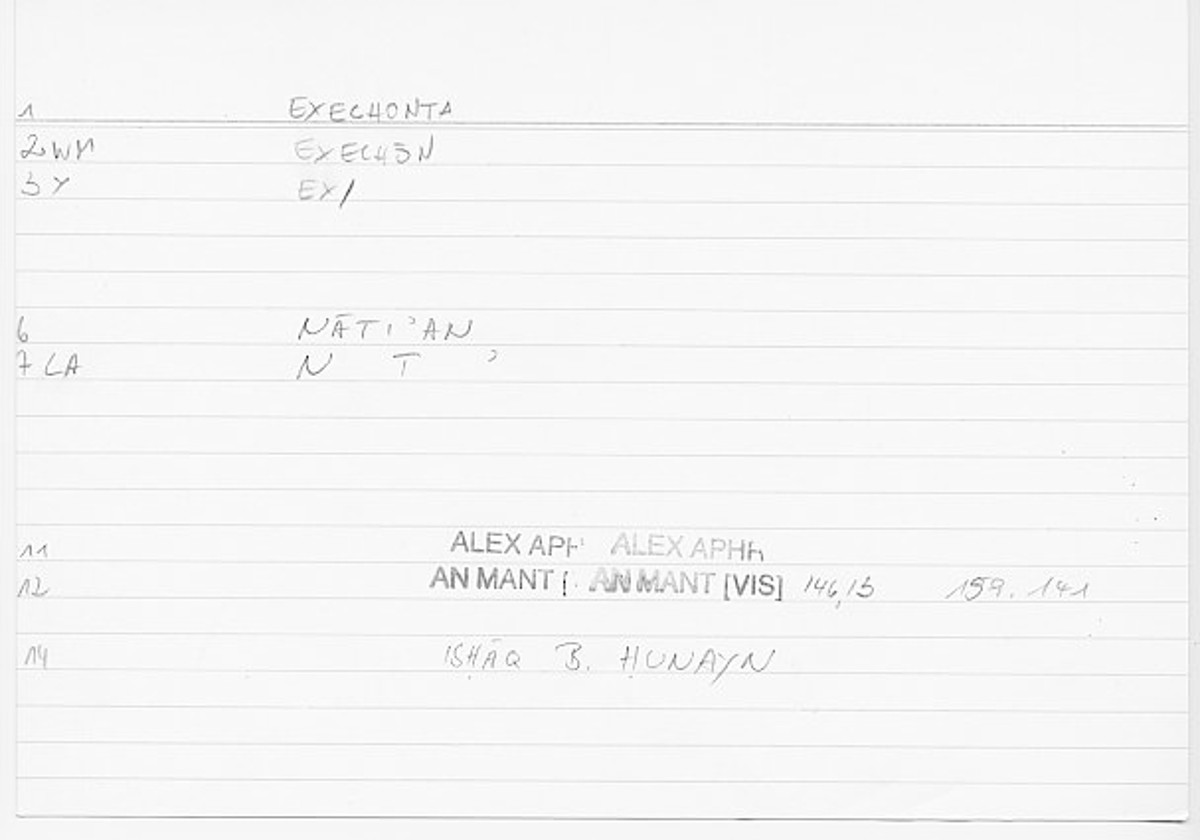 1 EXECHONTA
2 WM EXECHŌN
3 Y EX/
6 NĀTIʾAN
7 LA N T ʾ
11 ALEX APH ALEX APHR
12 AN MANT [ AN MANT [VIS] 146,15 159.141
14 ISḤĀQ B. ḤUNAYN